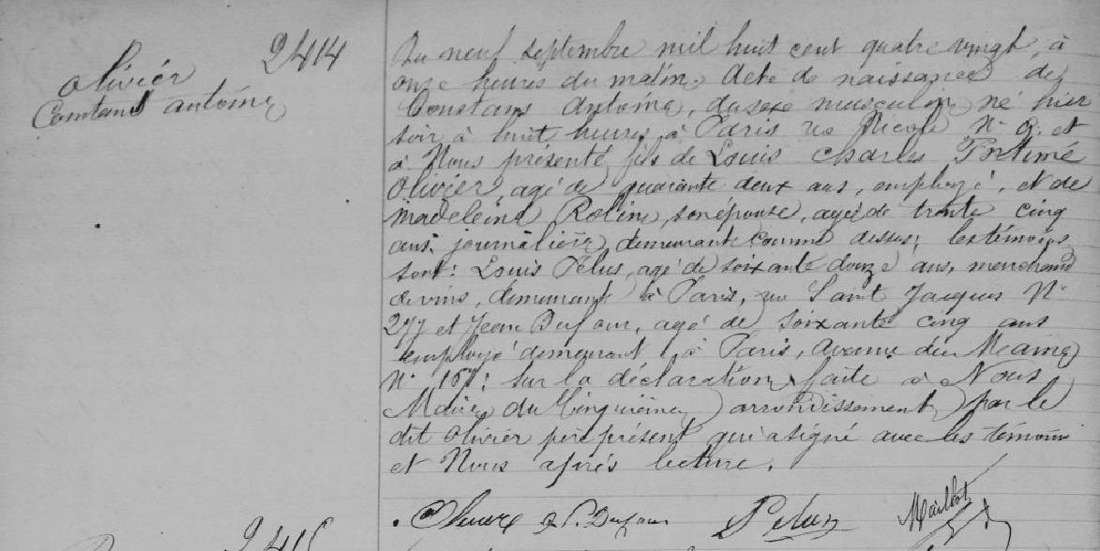 2414
Olivier
Constant Antoine
Du neuf septembre mil huit cent quatre vingt, à
onze heures du matin. Acte de naissance de
Constant Antoine, du sexe masculin né hier
soir à huit heures à Paris rue Nicole N° 9. et
à Nous présenté fils de Louis Charles Fortuné
Olivier agé de quarante deux ans, employé, et de
Madeleine Robine, son épouse, agée de trente cinq
ans, journalière, demeurant comme dessus; les témoins
sont: Louis Pelus, agé de soixante douze ans, marchand
de vins, demeurant à Paris, rue Saint Jacques N°
277 et Jean Dufour, agé de soixante cinq ans
employé demeurant à Paris, avenue du Maine
N° : Sur la déclaration faite à Nous
Maire du Cinquième arrondissement par le
dit Olivier père présent qui a signé avec les témoins
et Nous après lecture.
Dufour Pelus
2415